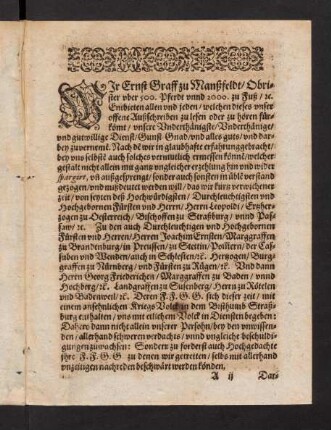 WIr Ernst Graff zu Manßfeldt/ Obri-
ster vber 500. Pferdt vnnd 2000. zu Fuß/ ꝛc.
Embieten allen vnd jeden/ welchen dieses vnser
offene Außschreiben zu lesen oder zu hören für-
kömt/ vnsere Vnderthänigste/ Vnderthänige/
vnd gutwillige Dienst/ Gunst/ Gnad/ vnd alles guts/ vnd dar-
bey zuvernemen. Nach dē wir in glaubhafte erfahrung gebracht/
bey vns selbst auch solches vernutlich ermessen könnē/ welcher
gestalt nicht allein mit gantz vngleicher erzehlung hin vnd wider
spargirt, vñ außgesprengt/ sonder auch sonsten in übel verstand
gezogen/ vnd mißdeutet werden will/ das wir kurtz verwichener
zeit/ von seyten deß Hochwürdigsten/ Durchleuchtigsten vnd
Hochgebornen Fürsten vnd Herrn/ Herrn Leopold/ Ertzher-
zogen zu Oesterreich/ Bischoffen zu Straßburg/ vnnd Pas-
saw/ ꝛc. Zu den auch Durchleuchtigen vnd Hochgebornen
Fürsten vnd Herren/ Herren Joachim Ernsten/ Marggraffen
zu Brandenburg/ in Preussen/ zu Stettin/ Pomern/ der Cas-
suben vnd Wenden/ auch in Schlesien/ ꝛc. Hertzogen/ Burg-
graffen zu Nürnberg/ vnd Fürsten zu Rügen/ ꝛc. Vnd dann
Herren Georg Friederichen/ Marggraffen zu Baden/ vnnd
Hochberg/ ꝛc. Landgraffen zu Susenberg/ Herren zu Röteln
vnd Badenweil/ ꝛc. Deren F. F. G G. sich dieser zeit/ mit
einem ansehnlichen Kriegs Volck in dem Bisthumb Straß-
burg enthalten/ vns mit etlichem Volck in Diensten begeben:
Dahero dann nicht allein vnserer Persohn/ bey den vnwissen-
den/ allerhand schweren verdachts/ vnnd vngleiche beschuldi-
gungen zuwachsen: Sondern zu forderst auch Hochgedachte
jhre F. F. G G zu denen wir getretten/ selbs mit allerhand
vnzeitigen nachreden beschwärt werden könden.
A ij Dar-